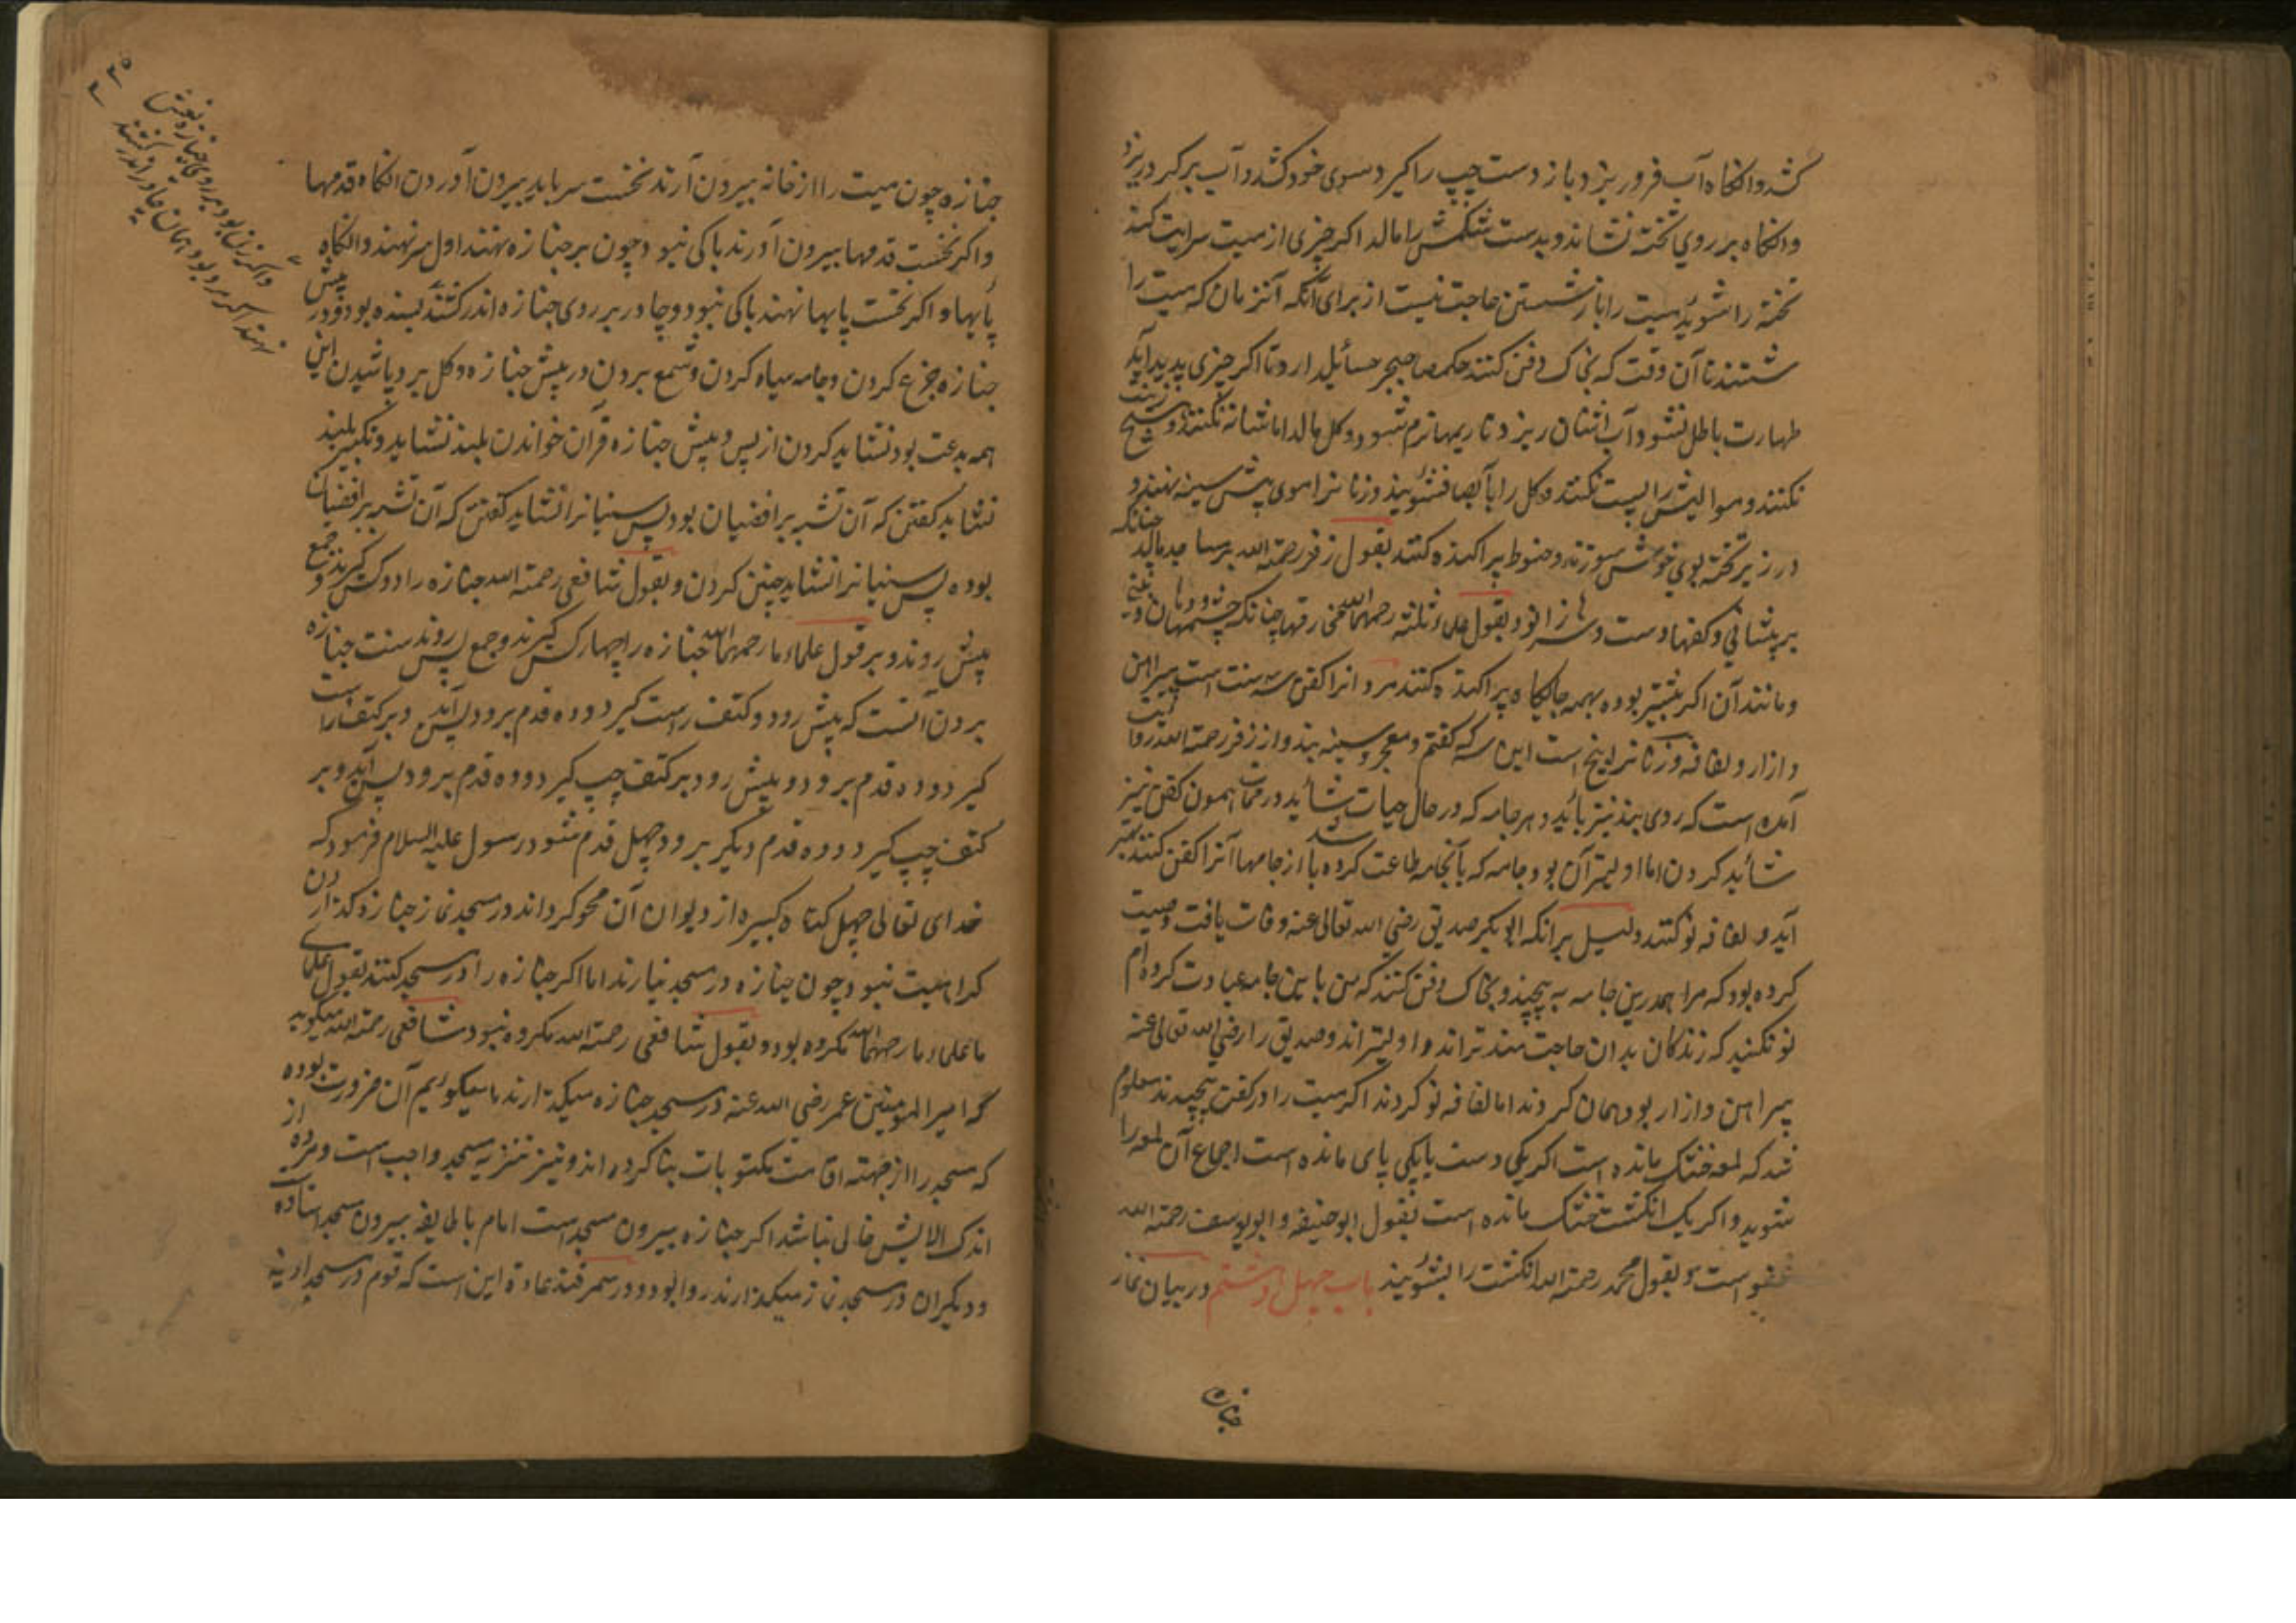 کشد و انکاه آب فرو ریزد و باز دست چپ را کیرد سوی خود کشد و آب بر کرد ریزد
و انکاه بر روی تخته نشاند و بدست شکمش را مالد اکر چیزی از میت سرایت کند
تخته را شوید میت را باز شستن حاجت نیست از برای آنکه آنزمان که میت را
شستند تا آن وقت که بخاک دفن کنند حکم صاحب جرح سائل دارد تا اکر چیزی پدید آید
طهارت باطل نشود و آب اشنان ریزد تا ریمها نرم شود و کل مالد اما شانه نکنند و
نکنند و موالیش را پست نکنند و کل را بآب صاف بشویند و زنانرا موی پیش سینه نهند و
در زیر تخته بوی خوش سوزند و حنوط پراکنده کنند بقول زفر رحمة الله بر مساجد مالد چنانکه
بر پیشانی و کفهاء دست و سر زانو و بقول علماء ثلثه رحمهم الله چنانکه چشمها و دهان و بینی
و مانند آن اکر بیشتر بوده بهمه جایکاه پراکنده کنند مردانرا کفن سه سنت است پیراهن
و ازار و لفافه و زنانرا پنج است این سه که کفتم و معجر و سینه بند و از زفر رحمة الله روایت
آمده است که روی بند نیز باید و هر جامه که در حال حیات شاید در ممات همون کفن نیز
شاید کردن اما اولیتر آن بود جامه که بآنجامه طاعت کرده باشد از جامها آنرا کفن کنند بهتر
آید و لفافه نو کنند دلیل بر آنکه ابوبکر صدیق رضی الله تعالی عنه وفات یافت وصیت
کرده بود که مرا همدرین جامه به پیچید و بخاک دفن کنند که من باین جامه عبادت کرده ام
نو نکنید که زندکان بدان حاجت مندتر اند و اولیتر اند و صدیق را رضی الله تعالی عنه
پیراهن و ازار بود همان کردند اما لفافه نو کردند اکر میت را در کفن پیچیدند معلوم
شد که لمعه خشک مانده است اکر یکی دست یا یکی پای مانده است اجماع آن لمعه را
شوید و اکر یک انکشت خشک مانده است بقول ابو حنیفه و ابو یوسف رحمة الله
عفو است و بقول محمد رحمة الله انکشت را بشویند باب چهل و هشتم در بیان نماز
جنازه
جنازه چون میت را از خانه بیرون آرند نخست سر باید بیرون آوردن انکاه قدمها
و اکر نخست قدمها بیرون آورند باکی نبود و چون بر جنازه نهند اول سر نهند و انکاه
پایها و اکر نخست پایها نهند باکی نبود و چادر بر روی جنازه اندر کشند پسنده بود و در پیش
جنازه جزع کردن و جامه سیاه کردن و شمع بردن در پیش جنازه و کل بر وی پاشیدن این
همه بدعت بود نشاید کردن از پس و پیش جنازه قرآن خواندن بلند نشاید و تکبیر بلند
نشاید کفتن که آن تشبه برافضیان بود پس سنیانرا نشاید کفتن که آن تشبه برافضیان
بوده پس سنیانرا نشاید چنین کردن و بقول شافعی رحمة الله جنازه را دو کس کیرند و جمع
پیش روند و بر قول علماء ما رحمهم الله جنازه را چهار کس کیرند و جمع پس روند سنت جنازه
بردن آنست که پیش رود و کتف راست کیرد و ده قدم برود پس آید و بر کتف راست
کیرد و ده قدم برود و پیش رود بر کتف چپ کیرد و ده قدم برود پس آید و بر
کتف چپ کیرد و ده قدم دیکر برود چهل قدم شود رسول علیه السلام فرمود که
خدای تعالی چهل کناه کبیره از دیوان آن محو کرداند در مسجد نماز جنازه کذاردن
کراهیت نبود چون جنازه در مسجد نیارند اما اکر جنازه را در مسجد کنند بقول علمای
ما علماء ما رحمهم الله مکروه بود و بقول شافعی رحمة الله مکروه نبود شافعی رحمة الله میکوید
که امیر المومنین عمر رضی الله عنه در مسجد جنازه میکذارند ما میکوئیم آن ضرورت بوده
که مسجد را از جهته اقامت مکتوبات بنا کرده اند و نیز تنزیه مسجد واجب است و مرده از
اندک الایش خالی نباشد اکر جنازه بیرون مسجد است امام با طایفه بیرون مسجد استاده
و دیکران در مسجد نماز میکذارند روا بود و در سمرقند عادة این است که قوم در مسجد آدینه